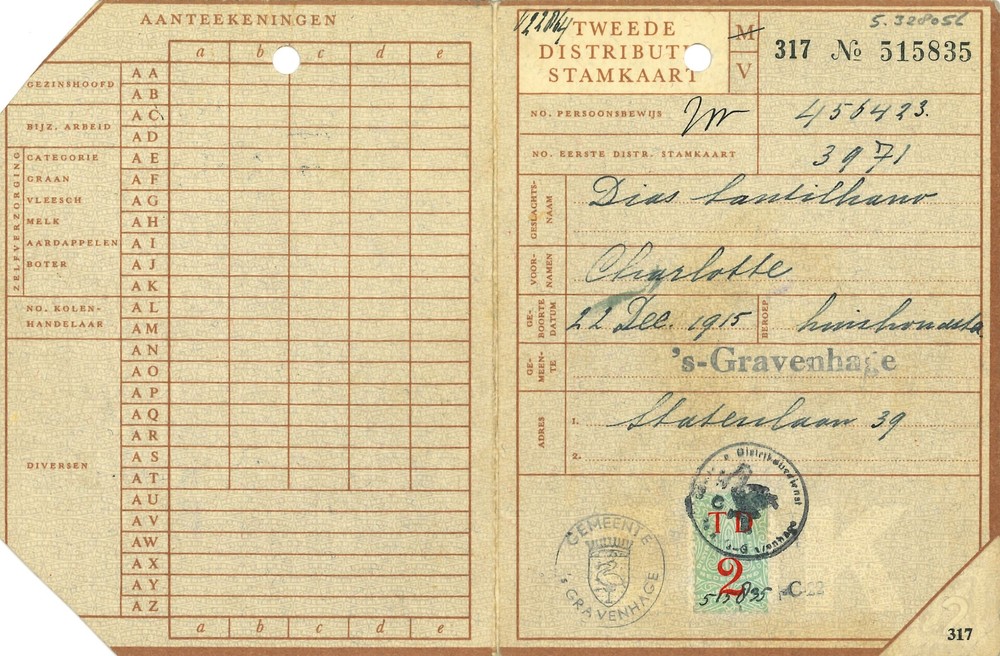 AANTEEKENINGEN
a b c d e
GEZINSHOOFD
A A
A B
BIJZ. ARBEID
A C
A D
ZELFVERZORGING
CATEGORIE A E
GRAAN A F
VLEESCH A G
MELK A H
AARDAPPELEN A I
BOTER A J
A K
NO. KOLEN-
HANDELAAR
A L
A M
DIVERSEN
A N
A O
A P
A Q
A R
A S
A T
A U
A V
AW
A X
A Y
A Z
a b c d e
5.328056
TWEEDE
DISTRIBUTIE
STAMKAART
M
V
317 No 515835
NO. PERSOONSBEWIJS 456423.
NO. EERSTE DISTR. STAMKAART 3971
GESLACHTS-
NAAM
Dias Santilhano
VOOR-
NAMEN
Charlotte
GE-
BOORTE
DATUM
22 Dec. 1915
BEROEP
GE-
MEEN-
TE
's-Gravenhage
ADRES
1. Statenlaan 39
2.
Distributiedienst
's-Gravenhage
GEMEENTE
's GRAVENHAGE
T D
2
515835
C 22
317